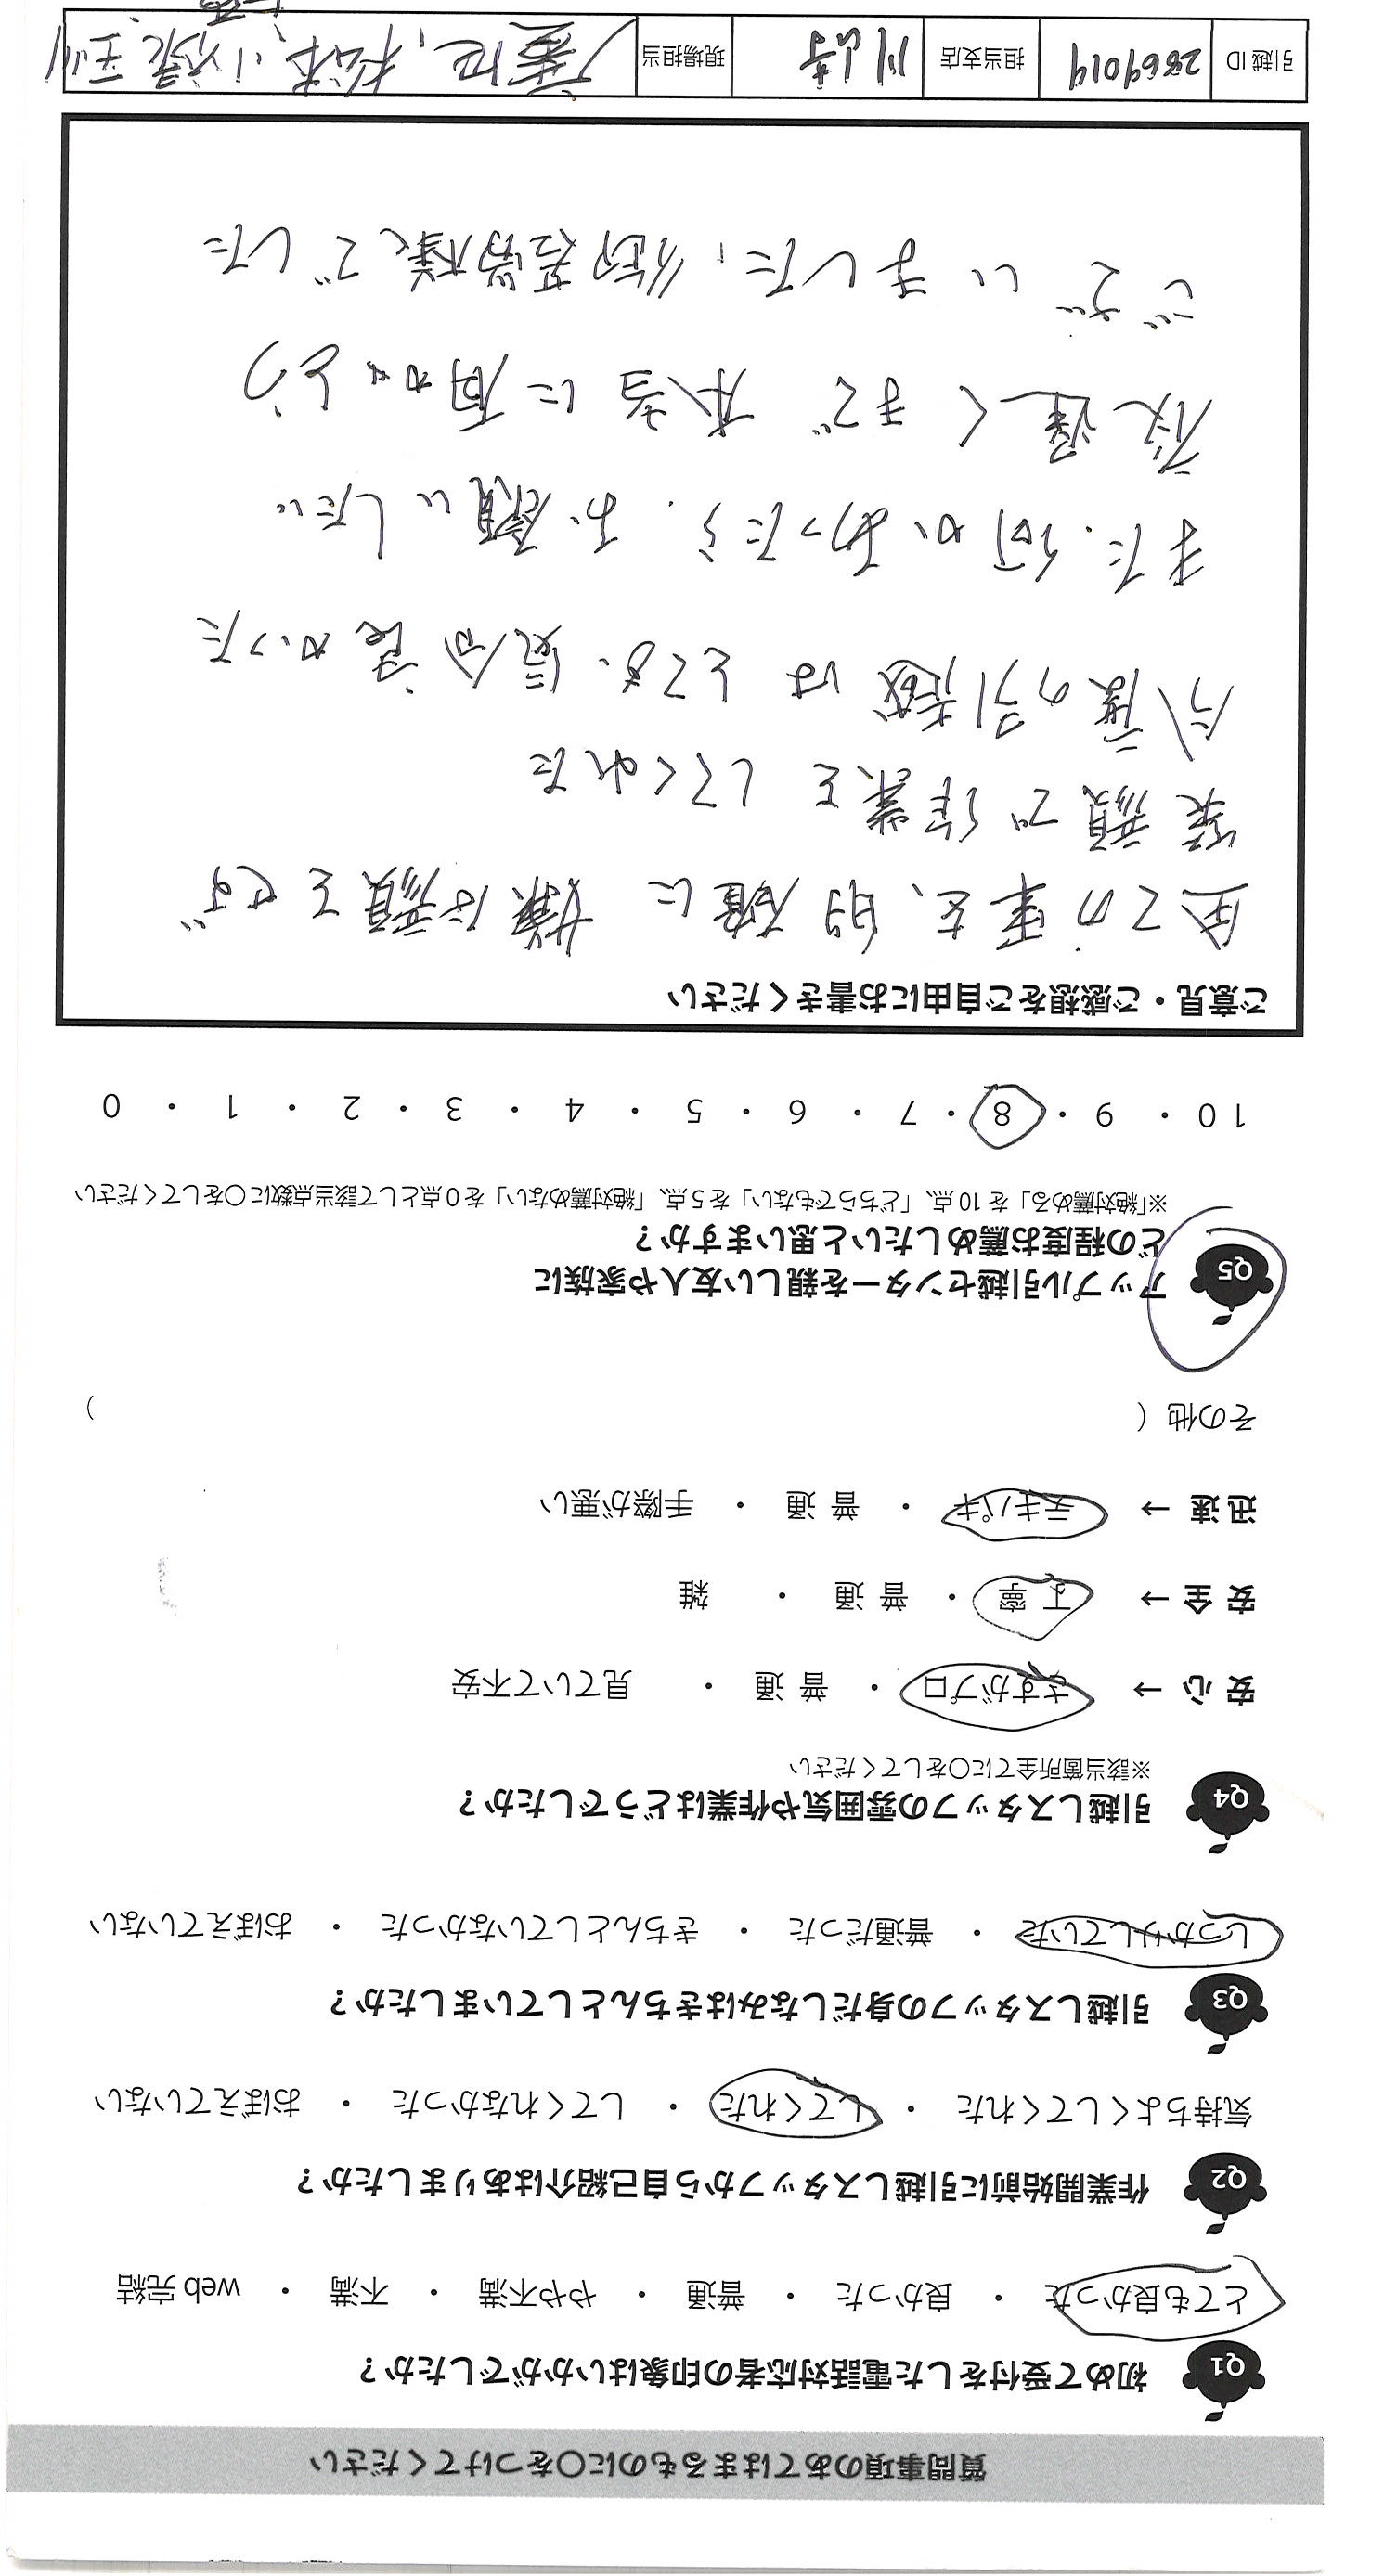 質問事項のあてはまるものに〇をつけてください
Q1 初めて受付をした電話対応者の印象はいかがでしたか？
とても良かった ・ 良かった ・ 普通 ・ やや不満 ・ 不満 ・ web 完結
Q2 作業開始前に引越しスタッフから自己紹介はありましたか？
気持ちよくしてくれた ・ してくれた ・ してくれなかった ・ おぼえていない
Q3 引越しスタッフの身だしなみはきちんとしていましたか？
しっかりしていた ・ 普通だった ・ きちんとしていなかった ・ おぼえていない
Q4 引越しスタッフの雰囲気や作業はどうでしたか？
※該当箇所全てに〇をしてください
安心 → さすがプロ ・ 普通 ・ 見ていて不安
安全 → 丁寧 ・ 普通 ・ 雑
迅速 → テキパキ ・ 普通 ・ 手際が悪い
その他（ ）
Q5 アップル引越センターを親しい友人や家族に
どの程度お薦めしたいと思いますか？
※「絶対薦める」を 10 点、「どちらでもない」を 5 点、「絶対薦めない」を 0 点として該当点数に〇をしてください
10 ・ 9 ・ 8 ・ 7 ・ 6 ・ 5 ・ 4 ・ 3 ・ 2 ・ 1 ・ 0
ご意見・ご感想をご自由にお書きください
全ての事を、的確に 嫌な顔もせず
笑顔で作業を してくれた
今度の引越は とても、気分良かった
また、何かあったら、お願いしたい
夜遅くまで 本当に有がとう
ございました、御苦労様でした
引越 ID 2869019 担当支店 川崎 現場担当 松本、小